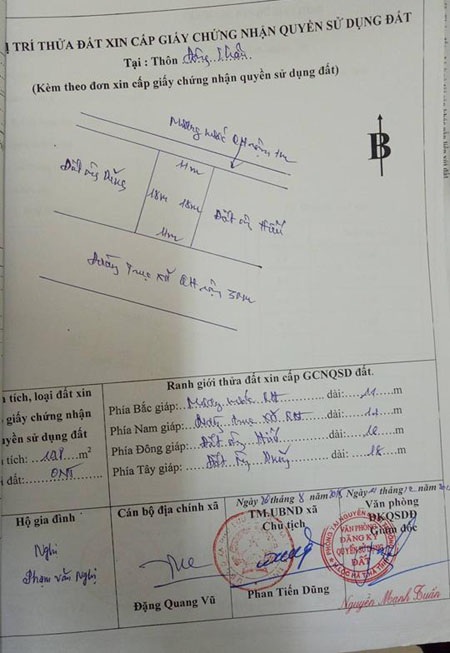 Ị TRÍ THỬA ĐẤT XIN CẤP GIẤY CHỨNG NHẬN QUYỀN SỬ DỤNG ĐẤT
Tại : Thôn
(Kèm theo đơn xin cấp giấy chứng nhận quyền sử dụng đất)
Mương nước QH rộng 1m
B
11m
Đất ông Dũng
18m 18m
Đất ông Hấu
11m
Đường trục xã QH rộng 30m
Ranh giới thửa đất xin cấp GCNQSD đất.
tích, loại đất xin
giấy chứng nhận
quyền sử dụng đất
tích: 198 m²
đất: ONT
Phía Bắc giáp: Mương nước QH dài: 11 m
Phía Nam giáp: Đường trục xã QH dài: 11 m
Phía Đông giáp: Đất ông Hấu dài: 18 m
Phía Tây giáp: Đất ông Dũng dài: 18 m
Hộ gia đình
Nghị
Phạm Văn Nghị
Cán bộ địa chính xã
Đặng Quang Vũ
Ngày tháng 8 năm
TM.UBND xã
Chủ tịch
Phan Tiến Dũng
Ngày tháng 12
Văn phòng
ĐKQSDĐ
Giám đốc
VĂN PHÒNG
ĐĂNG KÝ
QUYỀN SỬ DỤNG
ĐẤT
Nguyễn Mạnh Tuấn